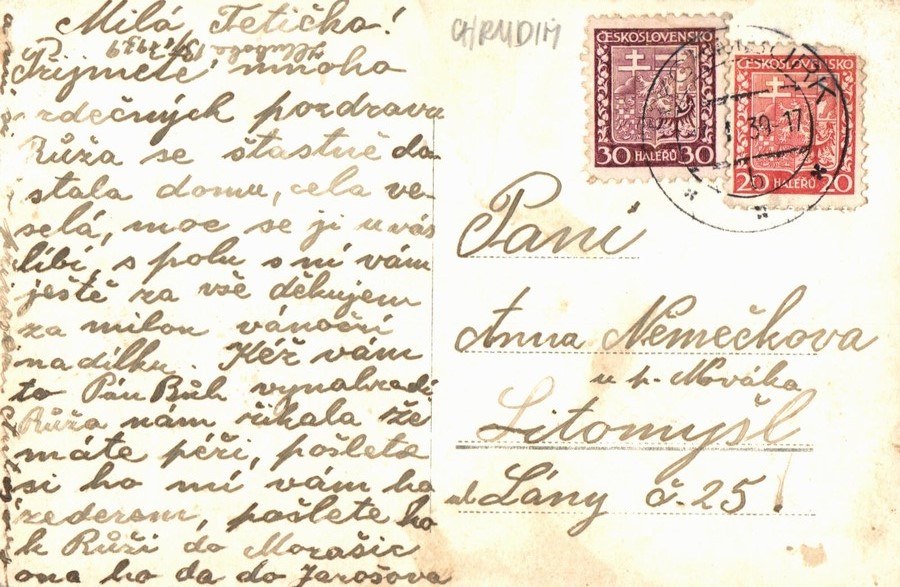 Milá Tetička!
Hluboká 1939
Přijměte mnoho
srdečných pozdravu
Růža se štastně do
stala domu, cela ve
selá, moc se ji u vás
líbí, s polu s ní vám
ještě za vše děkujem
za milou vánoční
nadílku. Kéž vám
to Pán Bůh vynahradí
Růža nám řikala že
máte péři, pošlete
si ho mi vám ho
zederem, pošlete ho
k Růži do Morašic
ona ho da do Jarošova
CHRUDIM
ČESKOSLOVENSKO
30 HALÉŘŮ 30
ČESKOSLOVENSKO
20 HALÉŘŮ 20
39-17
b
Paní
Anna Němečkova
u p. Nováka
Litomyšl
ul. Lány č. 25